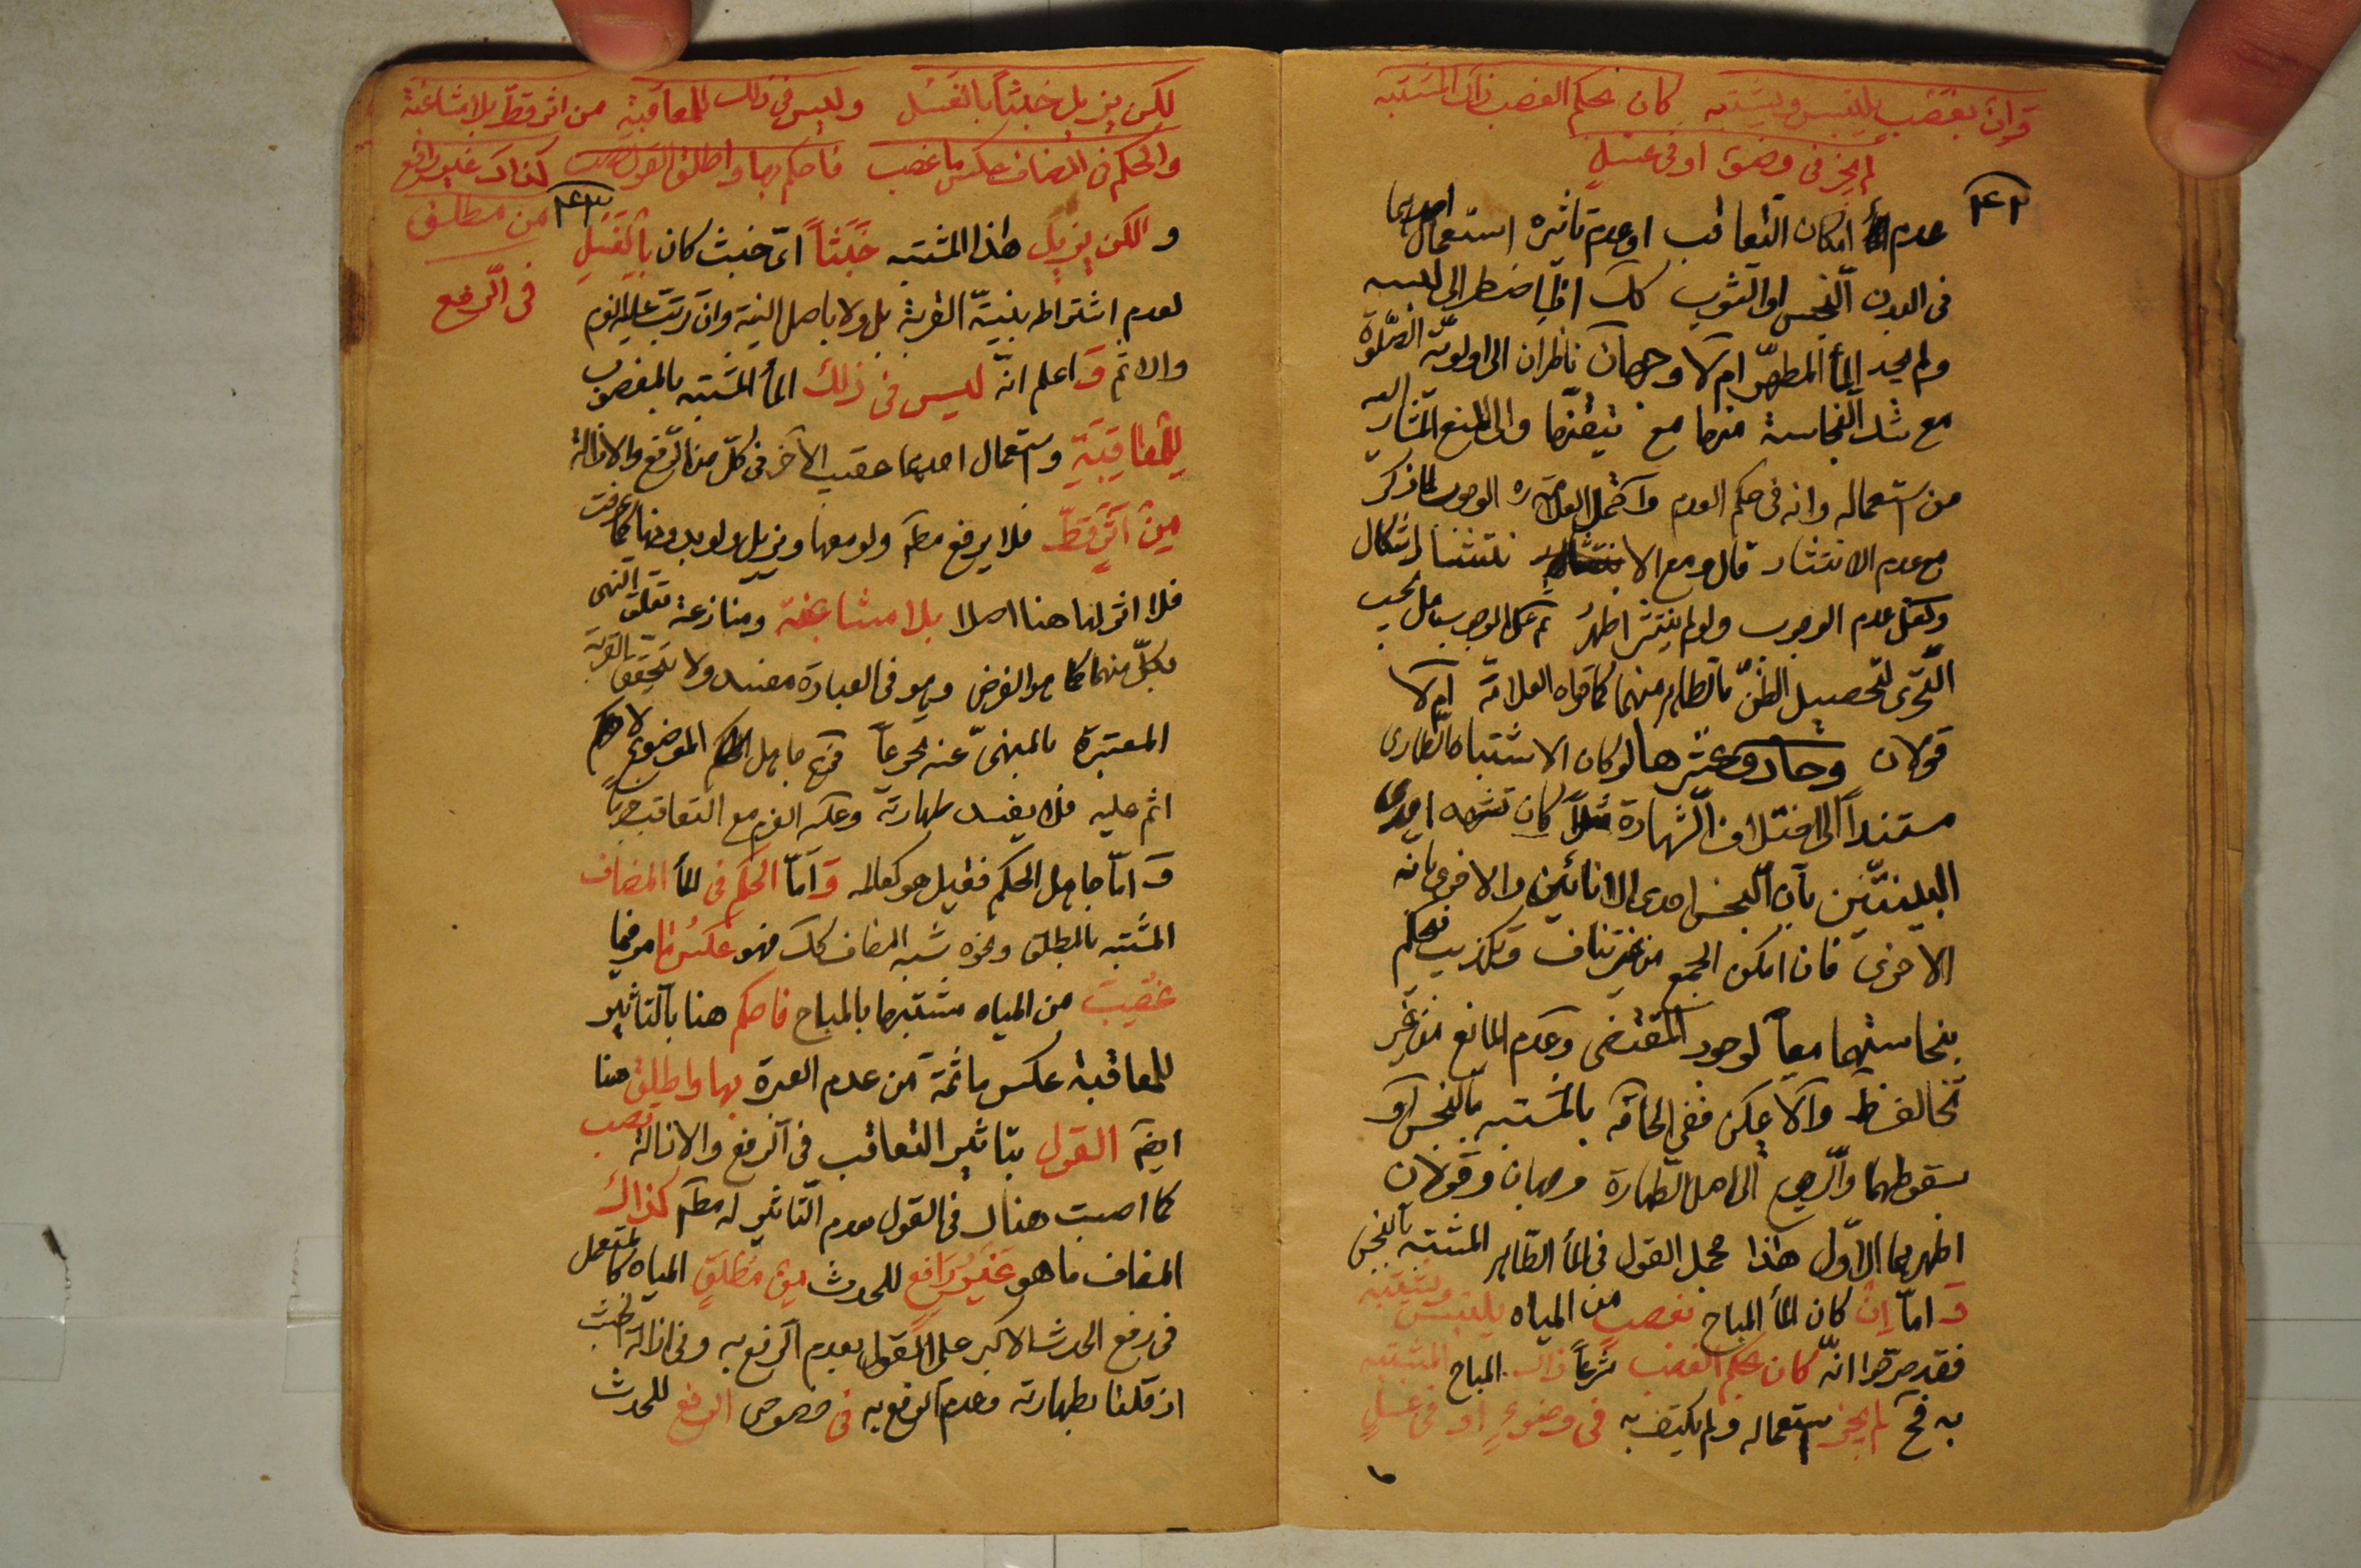 وان بغصب يلتبس ويشتبه كان بحكم الغصب ذاك المشتبه
لم يجز في وضوء او في غسل
٢٤٢
عدم امكان التعاقب او عدم تاثيره استعمال احدهما
في البدن النجس او الثوب كك اذا اضطر الى لبسه
ولم يجد الماأ المطهّر ام لا وجهان ناظران الى اولويّة الصّلوة
مع شك النجاسة منها مع تيقنها والى المنع المشار اليه
من استعماله وانه في حكم العدم واحتمل العلامة ره الوجوب لما ذكر
مع عدم الانتشار قال ومع الانتشار اشكال
ولعل عدم الوجوب ولو لم ينتشر اظهر ثم على الوجوب هل يجب
التّحرّى لتحصيل الظنّ بالطاهر منهما كما قواه العلامة ام لا
قولان وحادى عشرها لو كان الاشتباه الطارى
مستنداً الى اختلاف الشّهادة مثلاً كان تشهد احدى
البيّنتين بأن النجس احدى الانائين والاخرى بانه
الاخرى فان امكن الجمع من غير تناف وتكذيب فحكم
بنجاستهما معاً لوجود المقتضى وعدم المانع من غير
تخالف ظ والا يمكن ففى الحاقه بالمشتبه بالنجس او
سقوطهما والرجوع الى اصل الطهارة وجهان وقولان
اظهرهما الاوّل هذا مجمل القول في الماأ الطّاهر المشتبه بالنجس
و امّا ان كان الماأ المباح بغصب من المياه يلتبس ويشتبه
فقد صرّحوا انّه كان بحكم الغصب شرعاً ذاك المباح المشتبه
به فح لم يجز استعماله ولم يكتف به في وضوء او في غسل
لكن يزيل خبثاً بالغسل وليس في ذلك للمعاقبة من اثر قطّ بلا مشاغبة
والحكم في المضاف عكس ما غصب فاحكم بها واطلق القول تصب كذاك غير رافع
من مطلق
في الرفع
٢٤٣
و الكن يزيل هذا المشتبه خَبَثاً اى خبث كان بالغسل
لعدم اشتراطه بنيّة القربة بل ولا باصل النية وان ترتّب عليه اللوم
والاثم و اعلم انّه ليس في ذلك الماأ المشتبه بالمغصوب
للمعاقبة واستعمال احدهما عقيب الآخر في كلّ من الرّفع والازالة
من اثر قطّ فلا يرفع مطم ولو معها ويزيل ولو بدونها كما عرفت
فلا اثر لها هنا اصلا بلا مشاغبة ومنازعة تعلق النهى
بكلّ منهما كما هو الفرض وهو في العبادة مفسد ولا يتحقق القربة
المعتبرة بالمنهىّ عنه شرعاً فح جاهل الموضوع لا
اثم عليه فلا يفسد طهارته وعكه الغير مع التعاقب
و امّا جاهل الحكم فقيل هو كعالمه و امّا الحكم في الماأ المضاف
المشتبه بالمطلق ونحوه شبه المضاف كك فهو عكس ما مر فيما
غصبت من المياه مشتبها بالمباح فاحكم هنا بالتاثير
للمعاقبة عكس ما ثمة من عدم العبرة بها واطلق هنا
ايضً القول بتاثير التعاقب في الرفع والازالة تصب
كما اصبت هناك في القول بعدم التاثير له مطم كذاك
المضاف ما هو غير رافع للحدث من مطلق المياه كالمستعمل
في رفع الحدث الاكبر على القول بعدم الرفع به وفي ازالة الخبث
ان قلنا بطهارته وعدم الرفع به في خصوص الرفع للحدث